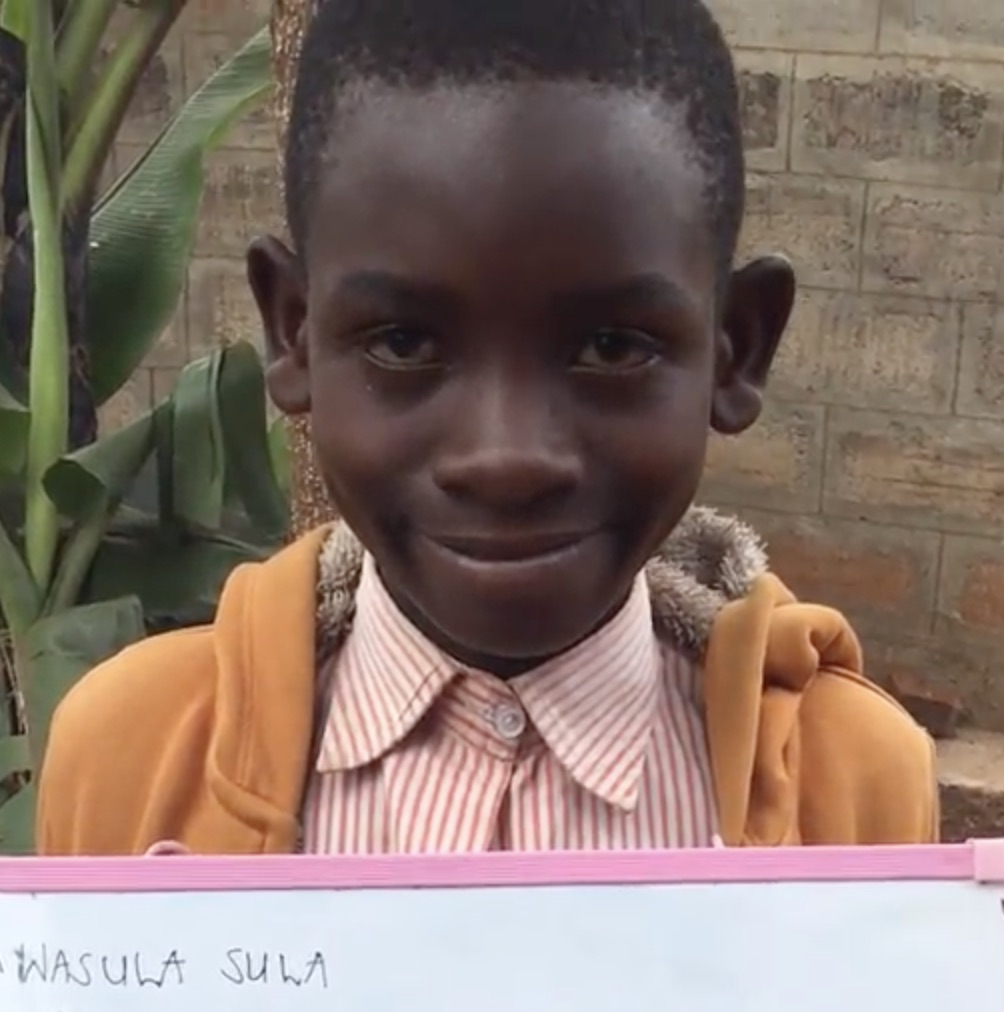 WASULA SULA